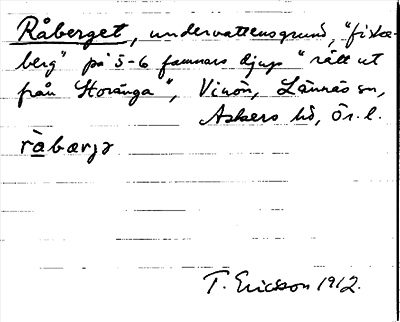 Råberget, undervattensgrund, "fiske-
berg" på 5-6 famnars djup "rätt ut
från Storänga", Vinön, Lännäs sn,
Askers hd, Ör. l.
råbærjə
T. Ericsson 1912.